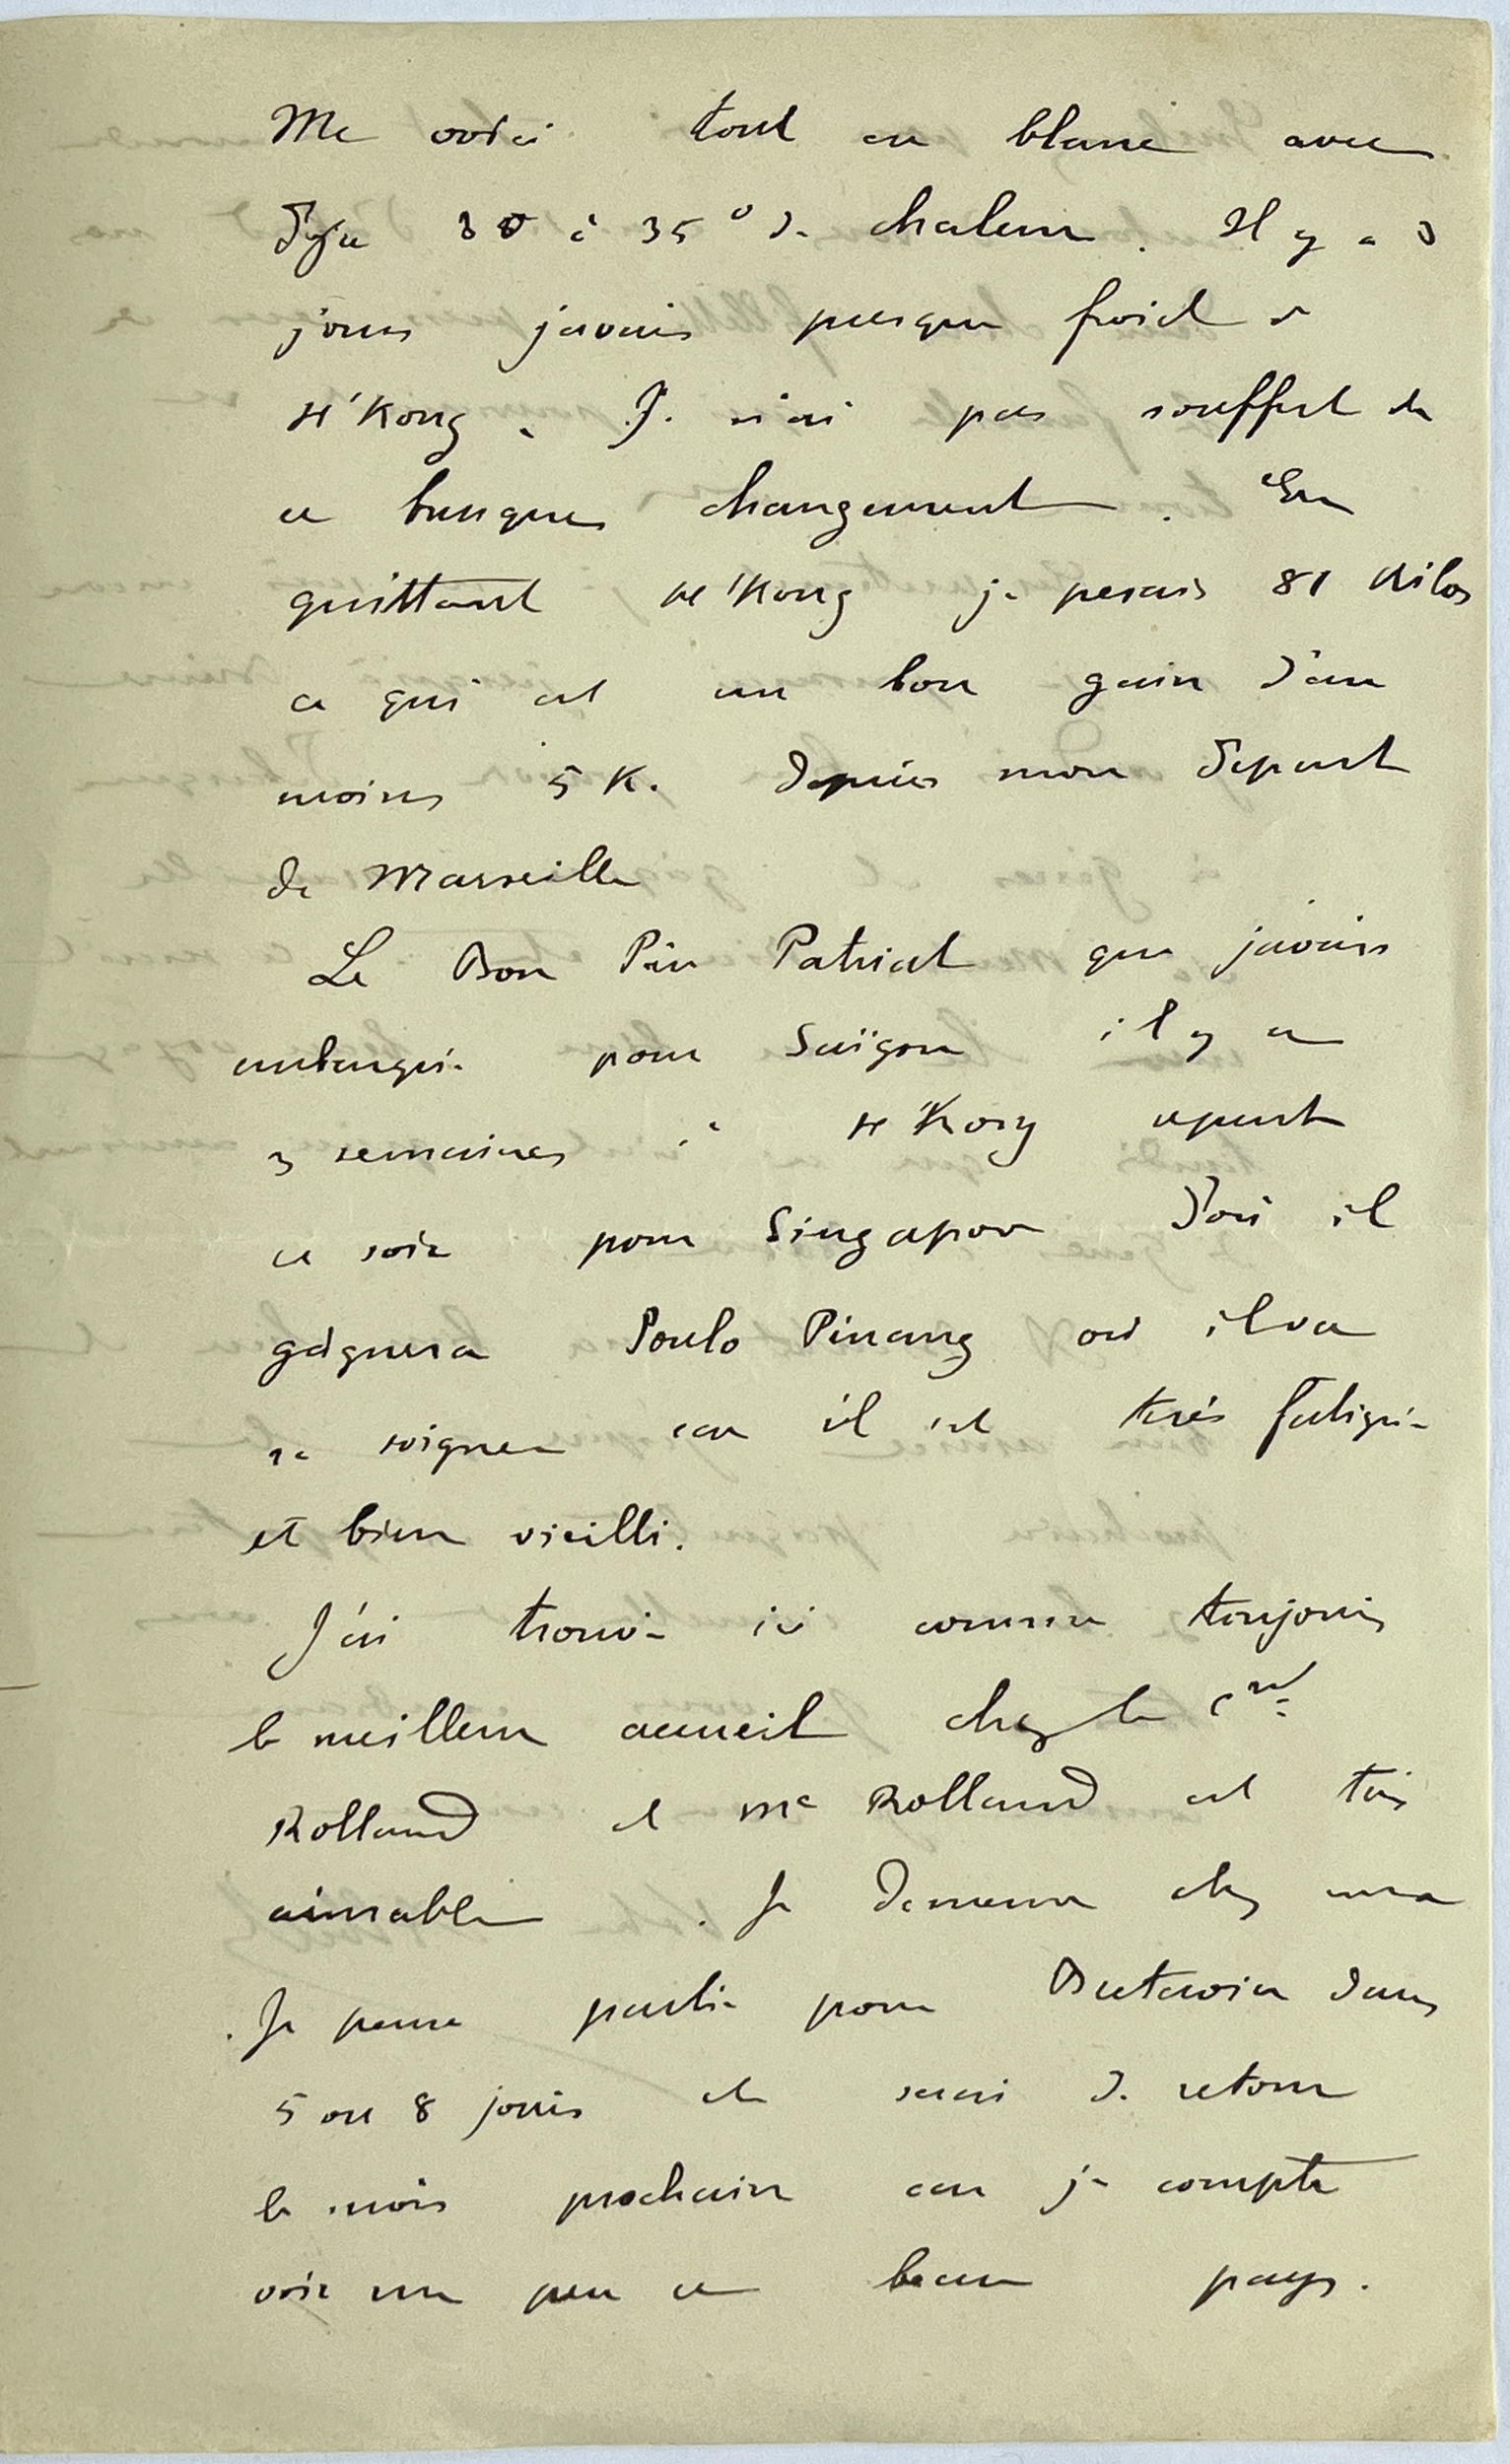 Me voici tout en blanc avec
déja 30 à 35° de chaleur. Il y a 3
jours javais presque froid à
H'Kong. Je n'ai pas souffert de
ce brusque changement. En
quittant H'Kong je pesais 81 Kilos
ce qui est un bon gain d'au
moins 5 K. depuis mon départ
de Marseille
Le Bon Père Patriat que javais
embarqué pour Saïgon il y a
3 semaines à H'Kong repart
ce soir pour Singapour d'où il
gagnera Poulo Pinang où il va
se soigner car il est très fatigué
et bien vieilli.
J'ai trouvé ici comme toujours
le meilleur accueil chez le
Rolland et Me Rolland est très
aimable. Je demeure chez eux
. Je pense partir pour Batavia dans
5 ou 8 jours et serai de retour
le mois prochain car je compte
voir un peu ce beau pays.